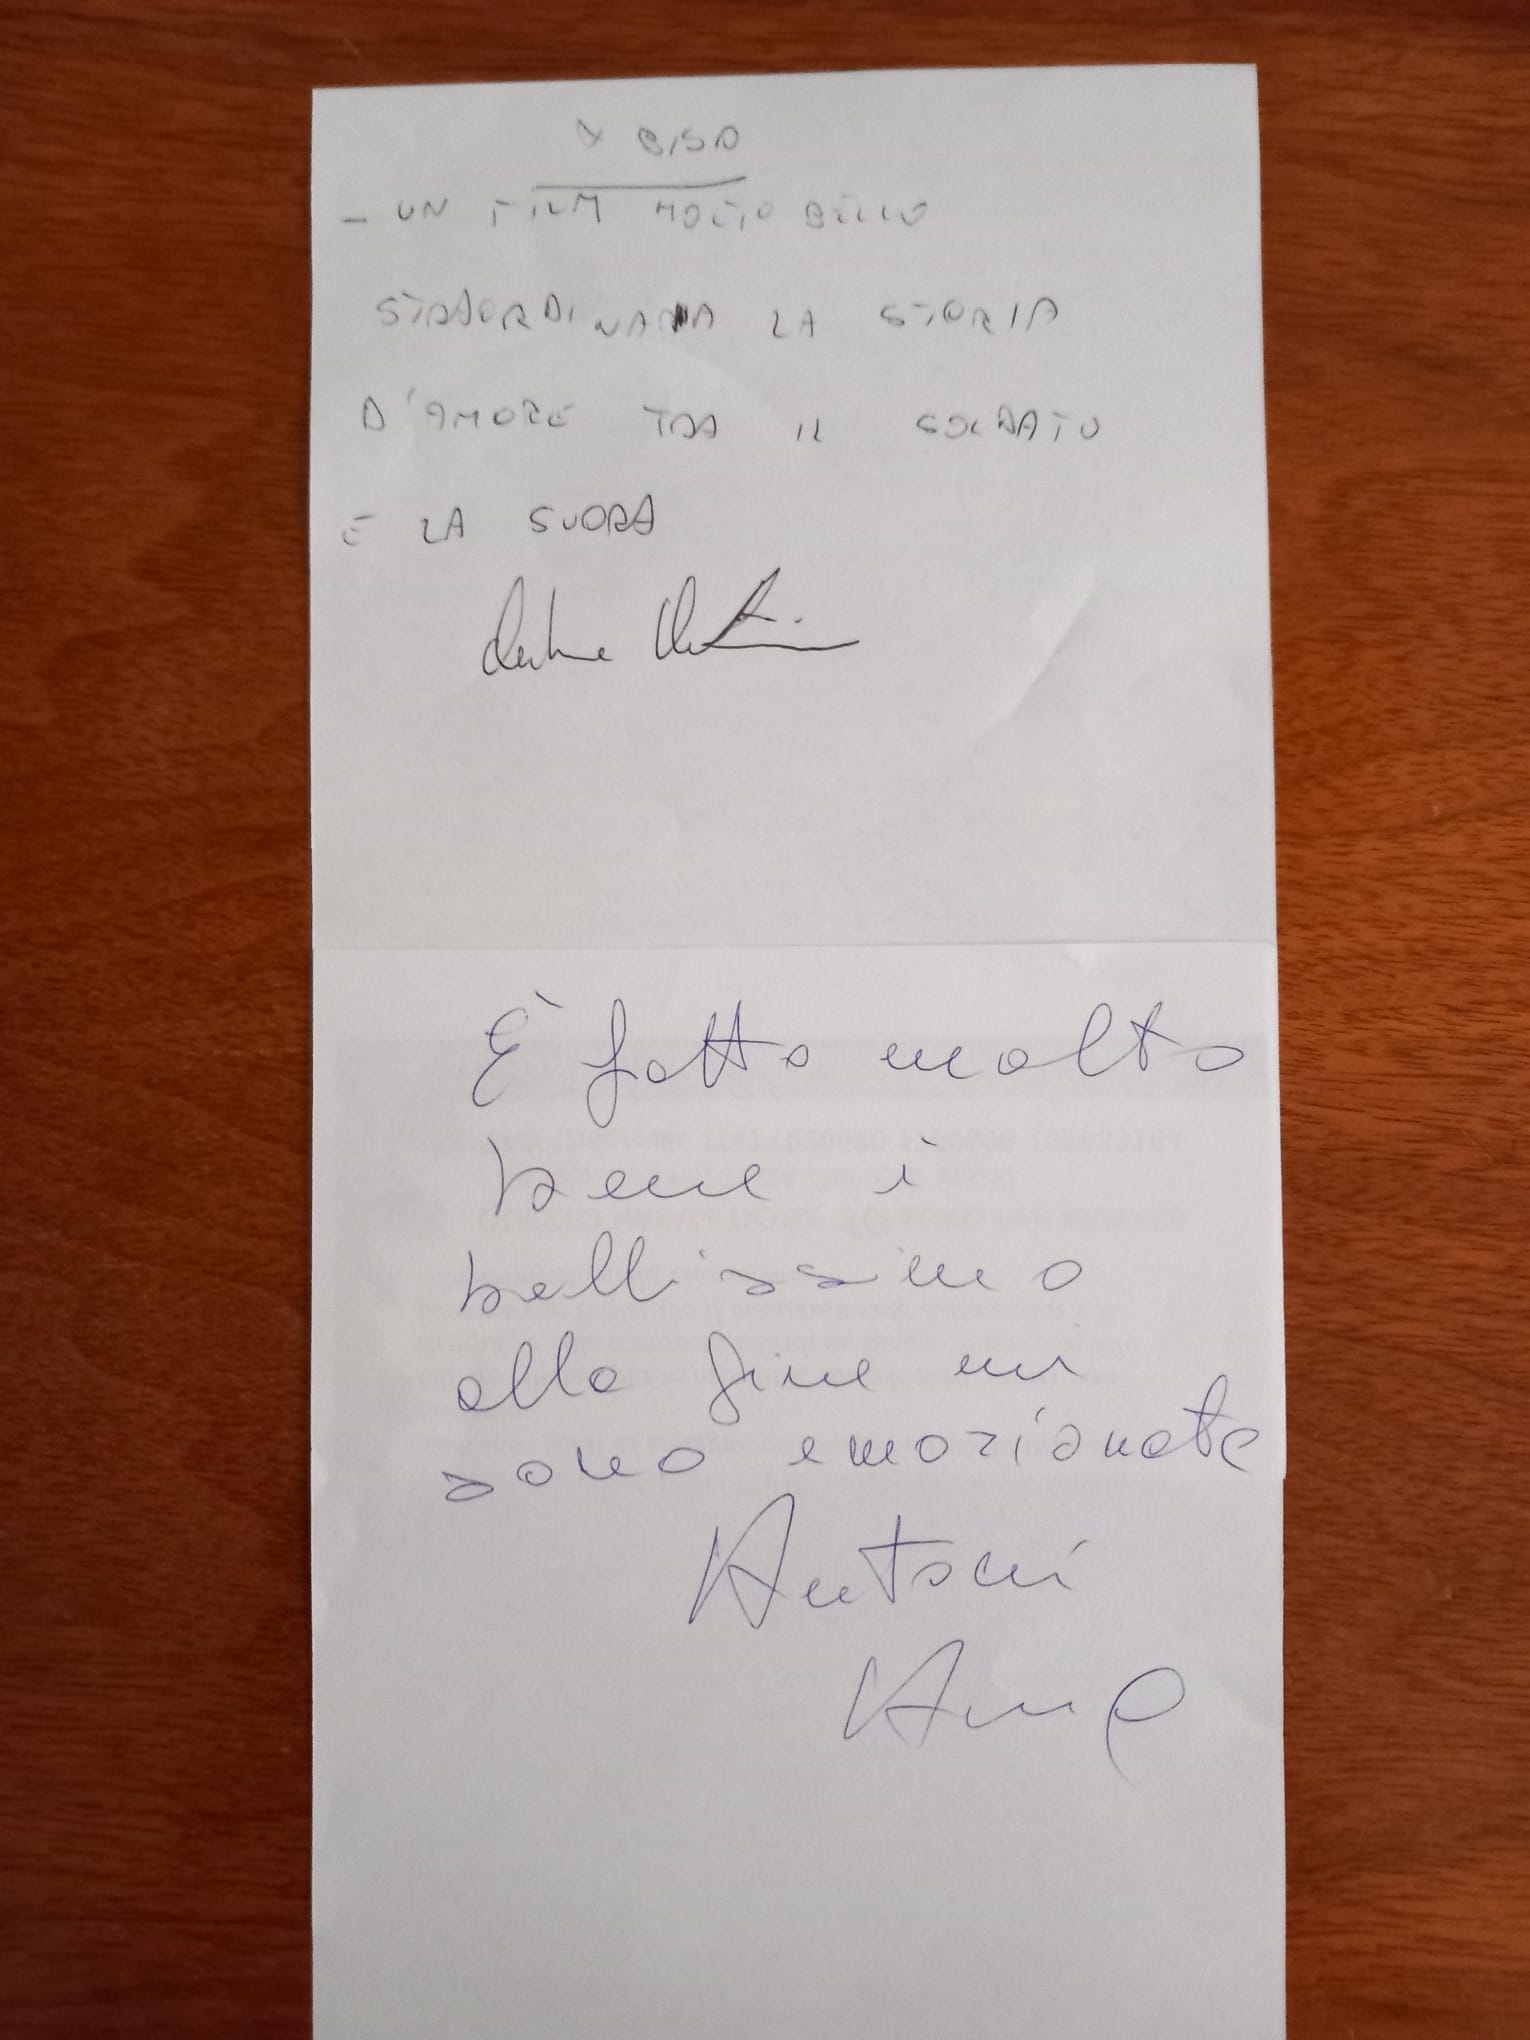 X BISO
- UN FILM MOLTO BELLO
STRAORDINARIA LA STORIA
D'AMORE TRA IL SOLDATO
E LA SUORA
È fatto molto
bene i
bellissimo
alla fine mi
sono emozionata
Antoni
Anna